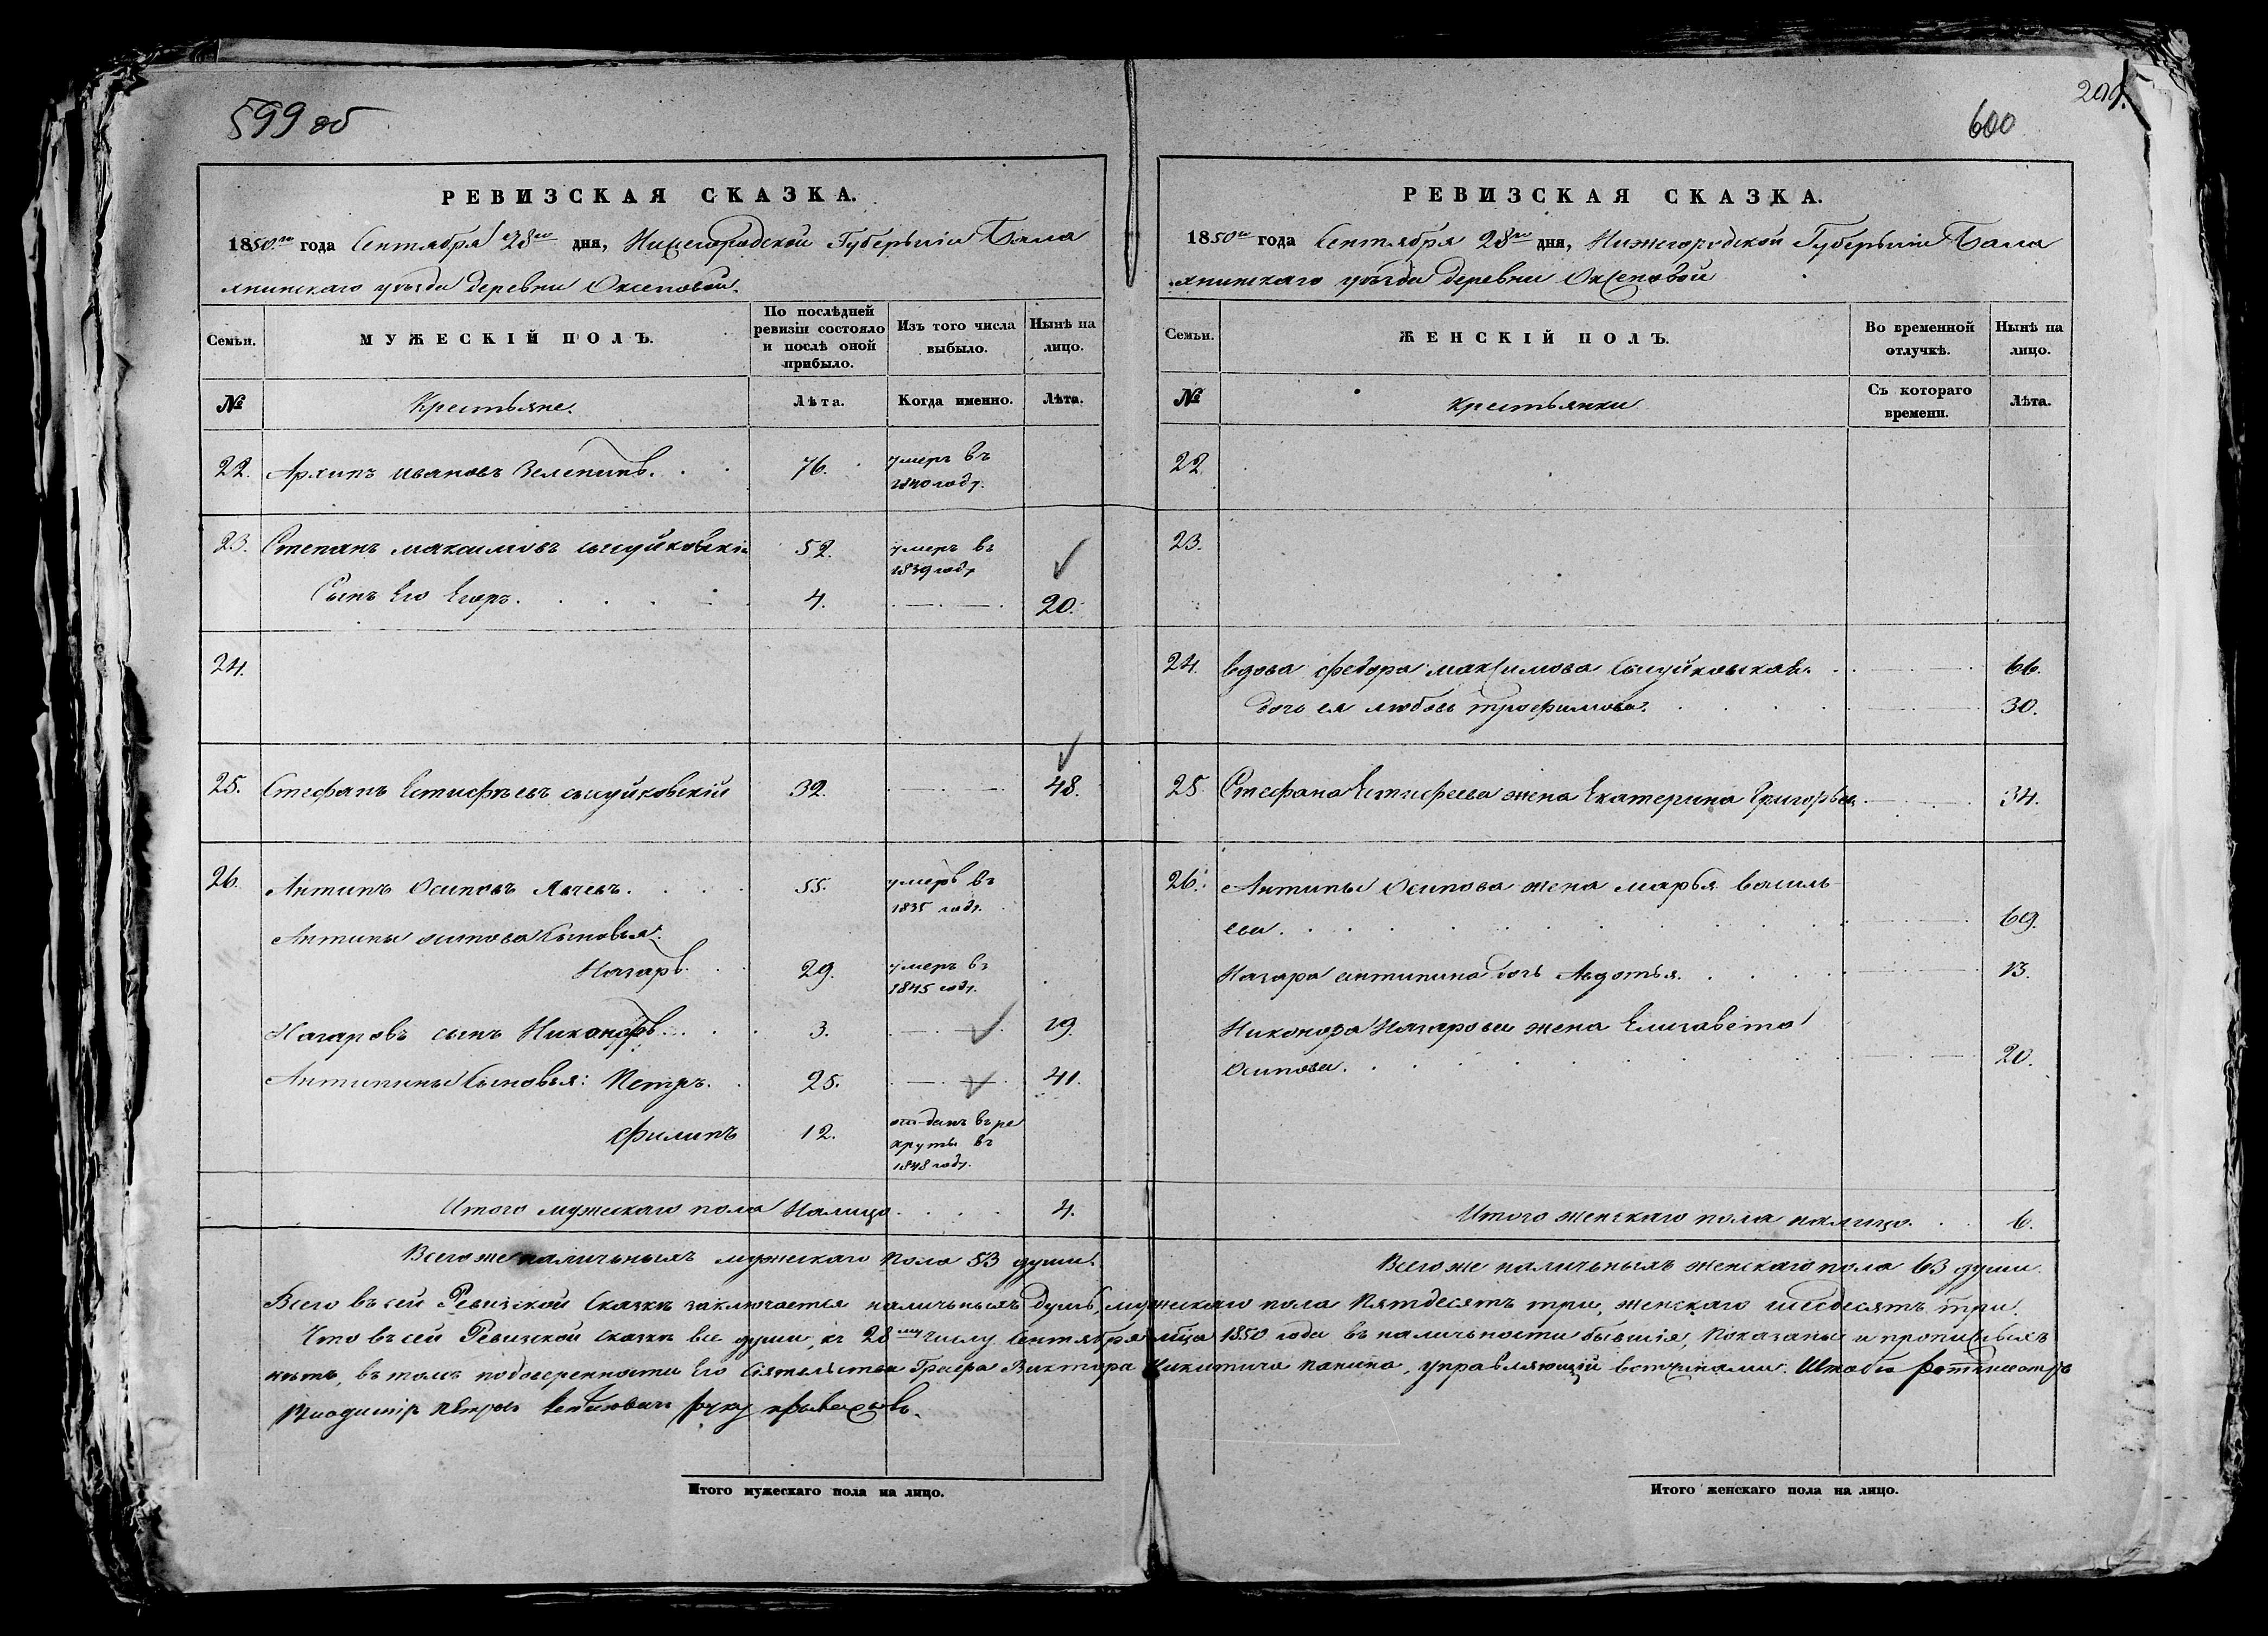 599 об
РЕВИЗСКАЯ СКАЗКА.
1850го года Сентября 28го дня, Нижегородской Губерніи Бала
хнинскаго уѣзда деревни Оксеновой.
Семьи.
МУЖЕСКІЙ ПОЛЪ.
По послѣдней
ревизіи состояло
и послѣ оной
прибыло.
Изъ того числа
выбыло.
Нынѣ на
лицо.
№
Крестьяне.
Лѣта.
Когда именно.
Лѣта.
22. Архипъ Ивановъ 76. умеръ въ
1840 году.
23. Степанъ Максимовъ 52. умеръ въ
1839 году
Сынъ его Егоръ. 4. 20.
24.
25. Стефанъ Естифѣевъ 32. 48.
26. Антипъ Осиповъ 55. умеръ въ
1835 году.
Антипы осипова сыновья:
Назаръ. 29. умеръ въ
1845 году.
Назаровъ сынъ Никаноръ. 3. 19.
Антипины сыновья: Петръ. 25. 41.
Филипъ 12. отданъ въ ре
круты въ
1848 году.
Итого мужескаго пола налицо. 4.
Всего же наличныхъ мужескаго пола 53 души.
600
РЕВИЗСКАЯ СКАЗКА.
1850го года Сентября 28го дня, Нижегородской Губерніи Бала
хнинскаго уѣзда деревни Оксеновой
Семьи.
ЖЕНСКІЙ ПОЛЪ.
Во временной
отлучкѣ.
Нынѣ на
лицо.
№
Крестьянки
Съ котораго
времени.
Лѣта.
22.
23.
24. вдова Федора Максимова 66.
дочь ея любовь трофимова. 30.
25. Стефана Естифеева жена Екатерина Григорьева 34.
26. Антипы Осипова жена марья василь
ева. 69.
Назара антипина дочь Авдотья. 13.
Никонора Назарова жена Елизавета
Осипова. 20.
Итого женскаго пола налицо. 6.
Всего же наличныхъ женскаго пола 63 души.
Всего въ сей Ревизской Сказкѣ заключается наличныхъ душъ, мужескаго пола Пятдесятъ три, женскаго шесдесятъ три.
Что въ сей Ревизской сказкѣ все души, къ 28му числу Сентября мѣца 1850 года въ наличности бывшія, показаны и прописныхъ
нѣтъ, въ томъ подоверенности Его Сіятельства Графа Виктора Никитича Панина, управляющій вотчинами. Штабъ ротмистръ
Владимиръ Петровъ руку приложилъ.
Итого мужескаго пола на лицо.
Итого женскаго пола на лицо.